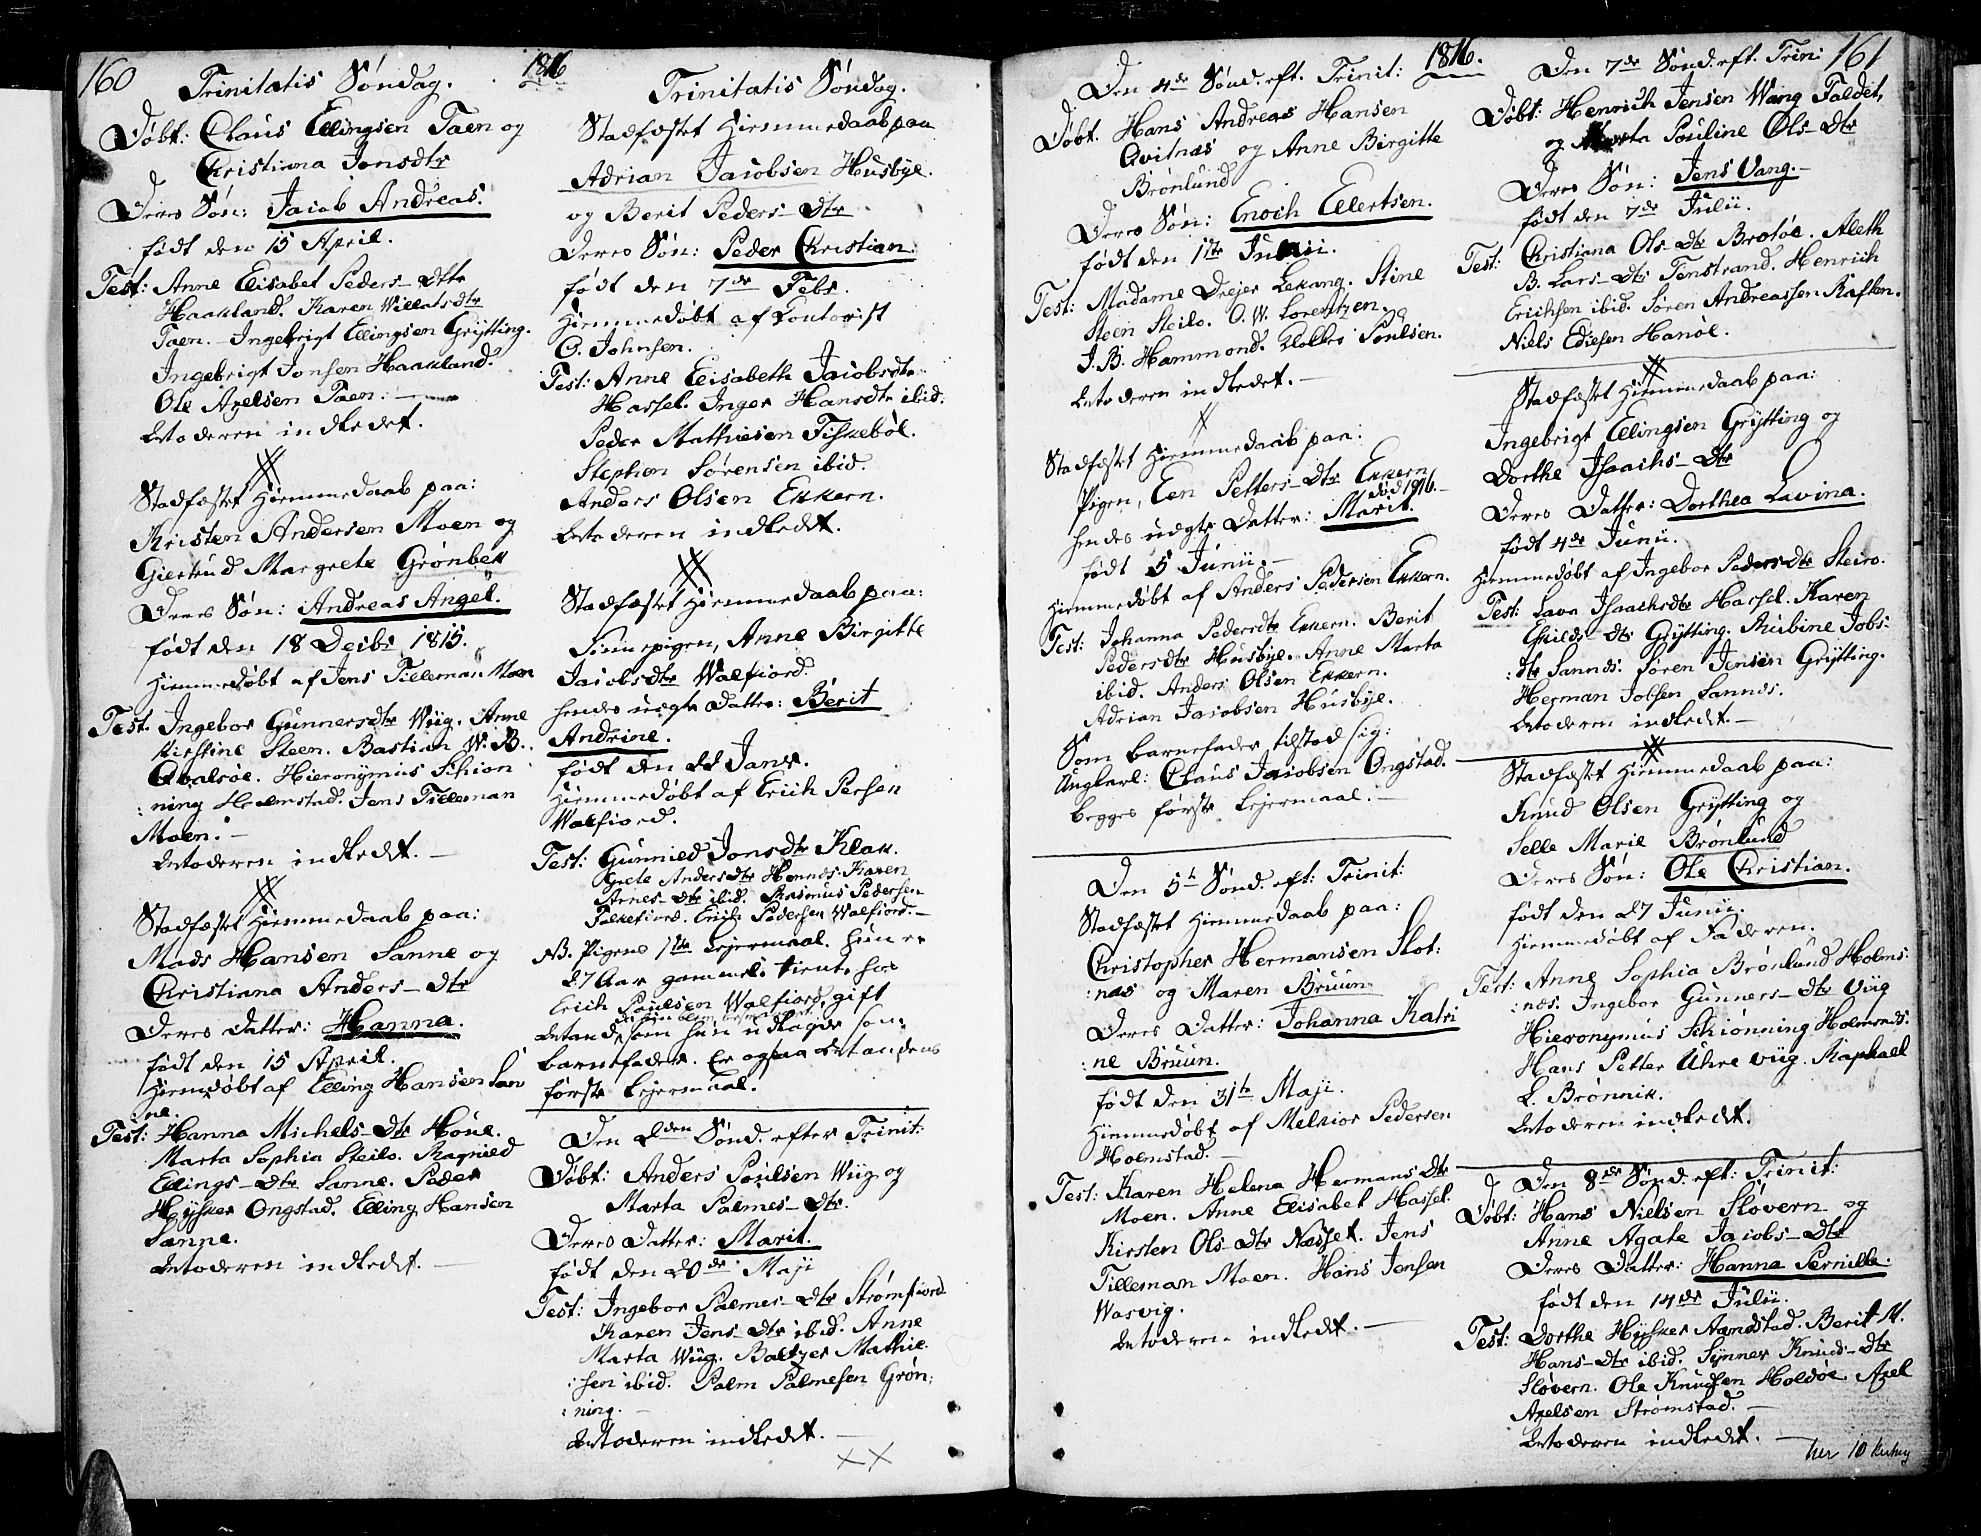 160
1816
Trinitatis Söndag.
Döbt: Claus Ellingsen Taen og
Christiana Jonsdtr
Deres Sön: Jacob Andreas.
födt den 15 April.
Test: Anne Elisabet Peders-Dttr
Haakland. Karen Willatsdtr
Taen. Ingebrigt Ellingsen Grytting.
Ingebrigt Jonsen Haakland.
Ole Axelsen Taen.
Introderen indledet.
Stadfæstet Hiemmedaab paa:
Kristen Andersen Moen og
Giertrud Margrete Grönbek
Deres Sön: Andreas Angel.
födt den 18 Decbr 1815.
Hiemmedöbt af Jens Tilleman Moen
Test. Ingebor Gunnersdtr Wiig. Anne
Kirstine Steen. Bastian W. B.
Qvalsöe. Hieronymus Schion
:ning Holmstad. Jens Tilleman
Moen.
Introderen indledet.
Stadfæstet Hiemmedaab paa:
Mads Hansen Sanne og
Christiana Anders-Dtr
Deres Datter: Hanna.
födt den 15 April.
Hiemdöbt af Elling Hansen San
ne.
Test: Hanna Michels-Dtr Höue.
Marta Sophia Steilo. Ragnied
Ellings-Dtr Sanne. Peder
Hysker Ongstad. Elling Hansen
Sanne.
Introderen indledet.
Trinitatis Söndag.
Stadfæstet Hiemmedaab paa
Adrian Jacobsen Husbye.
og Berit Peders-Dtr
Deres Sön: Peder Christian:
födt den 7de Febr.
Hiemmedöbt af Contorist
O. Johnsen.
Test: Anne Elisabeth Jacobsdtr
Hassel. Inger Hansdtr ibid.
Peder Mathiesen Fiskeböl.
Stephen Sörensen ibid.
Anders Olsen Ekkern.
Introderen indledet.
Stadfæstet Hiemmedaab paa:
Finnepigen, Anne Birgitte
Jacobsdtr Walfiord.
hendes uægte Datter: Berit
Andrine.
födt den 22 Janr.
Hiemmedöbt af Erich Persen
Walfiord.
Test: Gunnied Jonsdtr Klak.
Grete Andersdtr Hennes. Karen
Arnes-Dtr ibid. Rasmus Pedersen
Falkefiord. Erich Pedersen Walfiord.
NB. Pigens 1ste Leiermaal. Hun er
27 Aar gammel. tient hos
Erich Poulsen Walfiord, gift
som hun udlagde som
barnefader. Er ogsaa
förste Leiermaal.
Den 2den Sönd. efter Trinit:
Döbt: Anders Poulsen Wiig og
Marta Palmes-Dtr.
Deres Datter: Marit.
födt den 20de Maji
Test: Ingebor Palmes-Dtr Strömfiord
Karen Jens-Dtr ibid. Anne
Marta Wiig. Baltzer Mathie
:sen ibid. Palm Palmesen Grön:
:ning.
Introderen indledet.
161
1816.
Den 4de Sönd. eft. Trinit:
Döbt. Hans Andreas Hansen
Qvitnæs og Anne Birgitte
Brönlund
Deres Sön: Enoch Ellertsen.
födt den 1ste Junii.
Test: Madame Drejer Lekang. Stine
Steen Steilo. O. W. Lorentzen.
J. B. Hammond. Klokker Poulsen.
Introderen indledet.
Stadfæstet Hiemmedaab paa:
Pigen, Een Petters-Dtr Ekkern
död 1816.
hendes uægte Datter: Marit.
födt 5 Junii.
Hiemmedöbt af Anders Pedersen Ekkern.
Test: Johanna Pedersdtr Ekkern. Berit
Pedersdtr Husbye. Anne Marta
ibid. Anders Olsen Ekkern.
Adrian Jacobsen Husbye.
Som Barnefader tilstod sig:
Ungkarl: Claus Jacobsen Ongstad.
begges förste Leiermaal.
Den 5te Sönd. eft: Trinit:
Stadfæstet Hiemmedaab paa:
Christopher Hermansen Slot:
:næs og Maren Bruun
Deres Datter: Johanna Katri
:ne Bruun.
födt den 31te Maji.
Hiemmedöbt af Melkior Pedersen
Holmstad.
Test: Karen Helena HermansDtr
Moen. Anne Elisabet Hassel.
Kirsten Ols-Dtr Næsset. Jens
Tilleman Moen. Hans Jensen
Wasvig.
Introderen indledet.
Den 7de Sönd. eft. Trin:
Döbt: Henrich Jensen Wang Faldet,
og Marta Pouline Ols-Dtr
Deres Sön: Jens Vang.
födt den 7de Julii.
Test: Christiana Ols-Dtr Brotöe. Aleth
B. Lars-Dtr Finstrand. Henrich
Erichsen ibid. Sören Andreassen Kaften.
Niels Ediesen Hanöe.
Stadfæstet Hiemmedaab paa:
Ingebrigt Ellingsen Grytting og
Dorthe Isaachs-Dtr
Deres Datter: Dorthea Lavina.
födt 4de Junii.
Hiemmedöbt af Ingebor Pedersdtr Steiro.
Test: Lava Isaachsdtr Hassel. Karen
Eskilds-Dtr Grytting. Rubine Jobs-
:dtr Sannes. Sören Jensen Grytting.
Herman Jobsen Sannes.
Introderen indledet.
Stadfæstet Hiemmedaab paa:
Knud Olsen Grytting og
Selle Marie Brönlund
Deres Sön: Ole Christian.
födt den 27 Junii.
Hiemmedöbt af Faderen.
Test: Anne Sophia Brönlund Holms:
:næs. Ingebor Gunners-Dtr Viig
Hieronymus Schiönning Holmsnæs.
Hans Petter Uhre Viig. Raphael
L. Brönnik.
Introderen indledet.
Den 8de Sönd. eft: Trinit:
Döbt: Hans Nielsen Slövern og
Anne Agate Jacobs-Dtr
Deres Datter: Hanna Pernille:
födt den 14de Julii.
Test: Dorthe Hysker Aanstad. Berit M.
Hans-Dtr ibid. Synner Knuds-Dtr
Slövern. Ole Knudsen Holdöe. Axel
Axelsen Strömstad.
Introderen indledet.
her 10